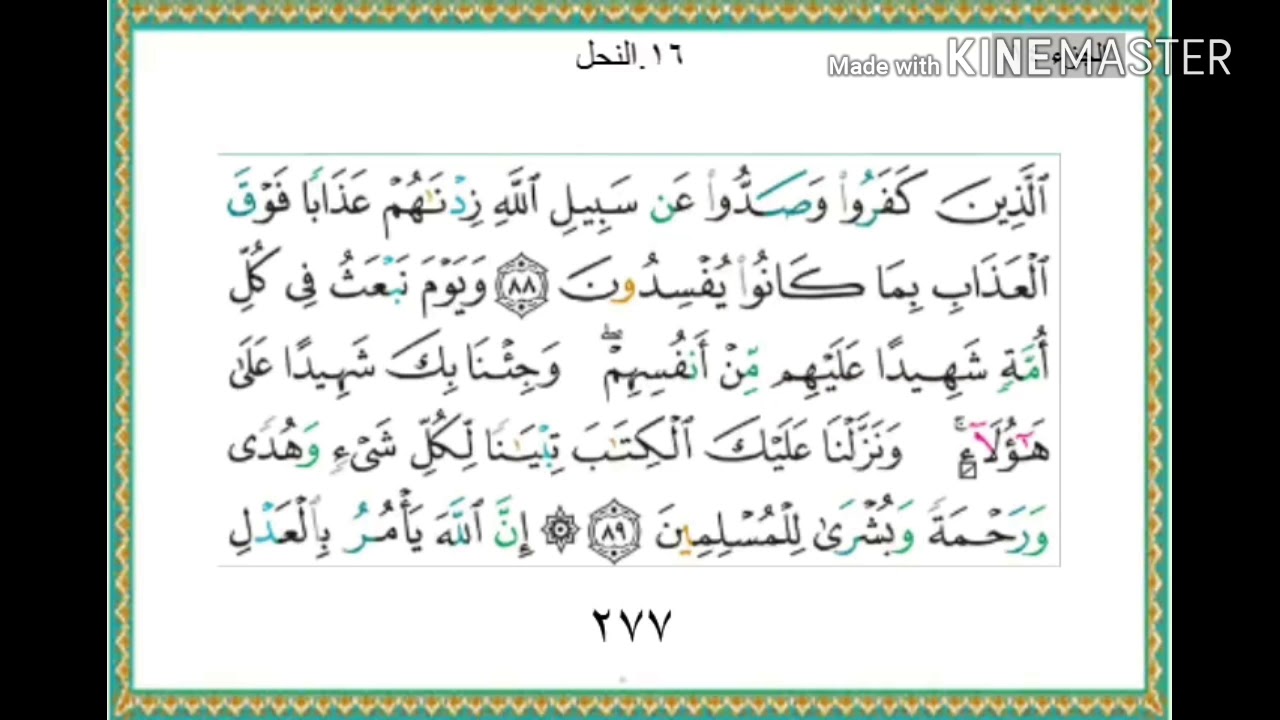 ١٦.النحل
Made with KINEMASTER
ٱلَّذِينَ كَفَرُوا۟ وَصَدُّوا۟ عَن سَبِيلِ ٱللَّهِ زِدْنَـٰهُمْ عَذَابًا فَوْقَ
ٱلْعَذَابِ بِمَا كَانُوا۟ يُفْسِدُونَ ٨٨ وَيَوْمَ نَبْعَثُ فِى كُلِّ
أُمَّةٍ شَهِيدًا عَلَيْهِم مِّنْ أَنفُسِهِمْ ۖ وَجِئْنَا بِكَ شَهِيدًا عَلَىٰ
هَـٰٓؤُلَآءِ ۚ وَنَزَّلْنَا عَلَيْكَ ٱلْكِتَـٰبَ تِبْيَـٰنًا لِّكُلِّ شَىْءٍ وَهُدًى
وَرَحْمَةً وَبُشْرَىٰ لِلْمُسْلِمِينَ ٨٩ ۞ إِنَّ ٱللَّهَ يَأْمُرُ بِٱلْعَدْلِ
٢٧٧